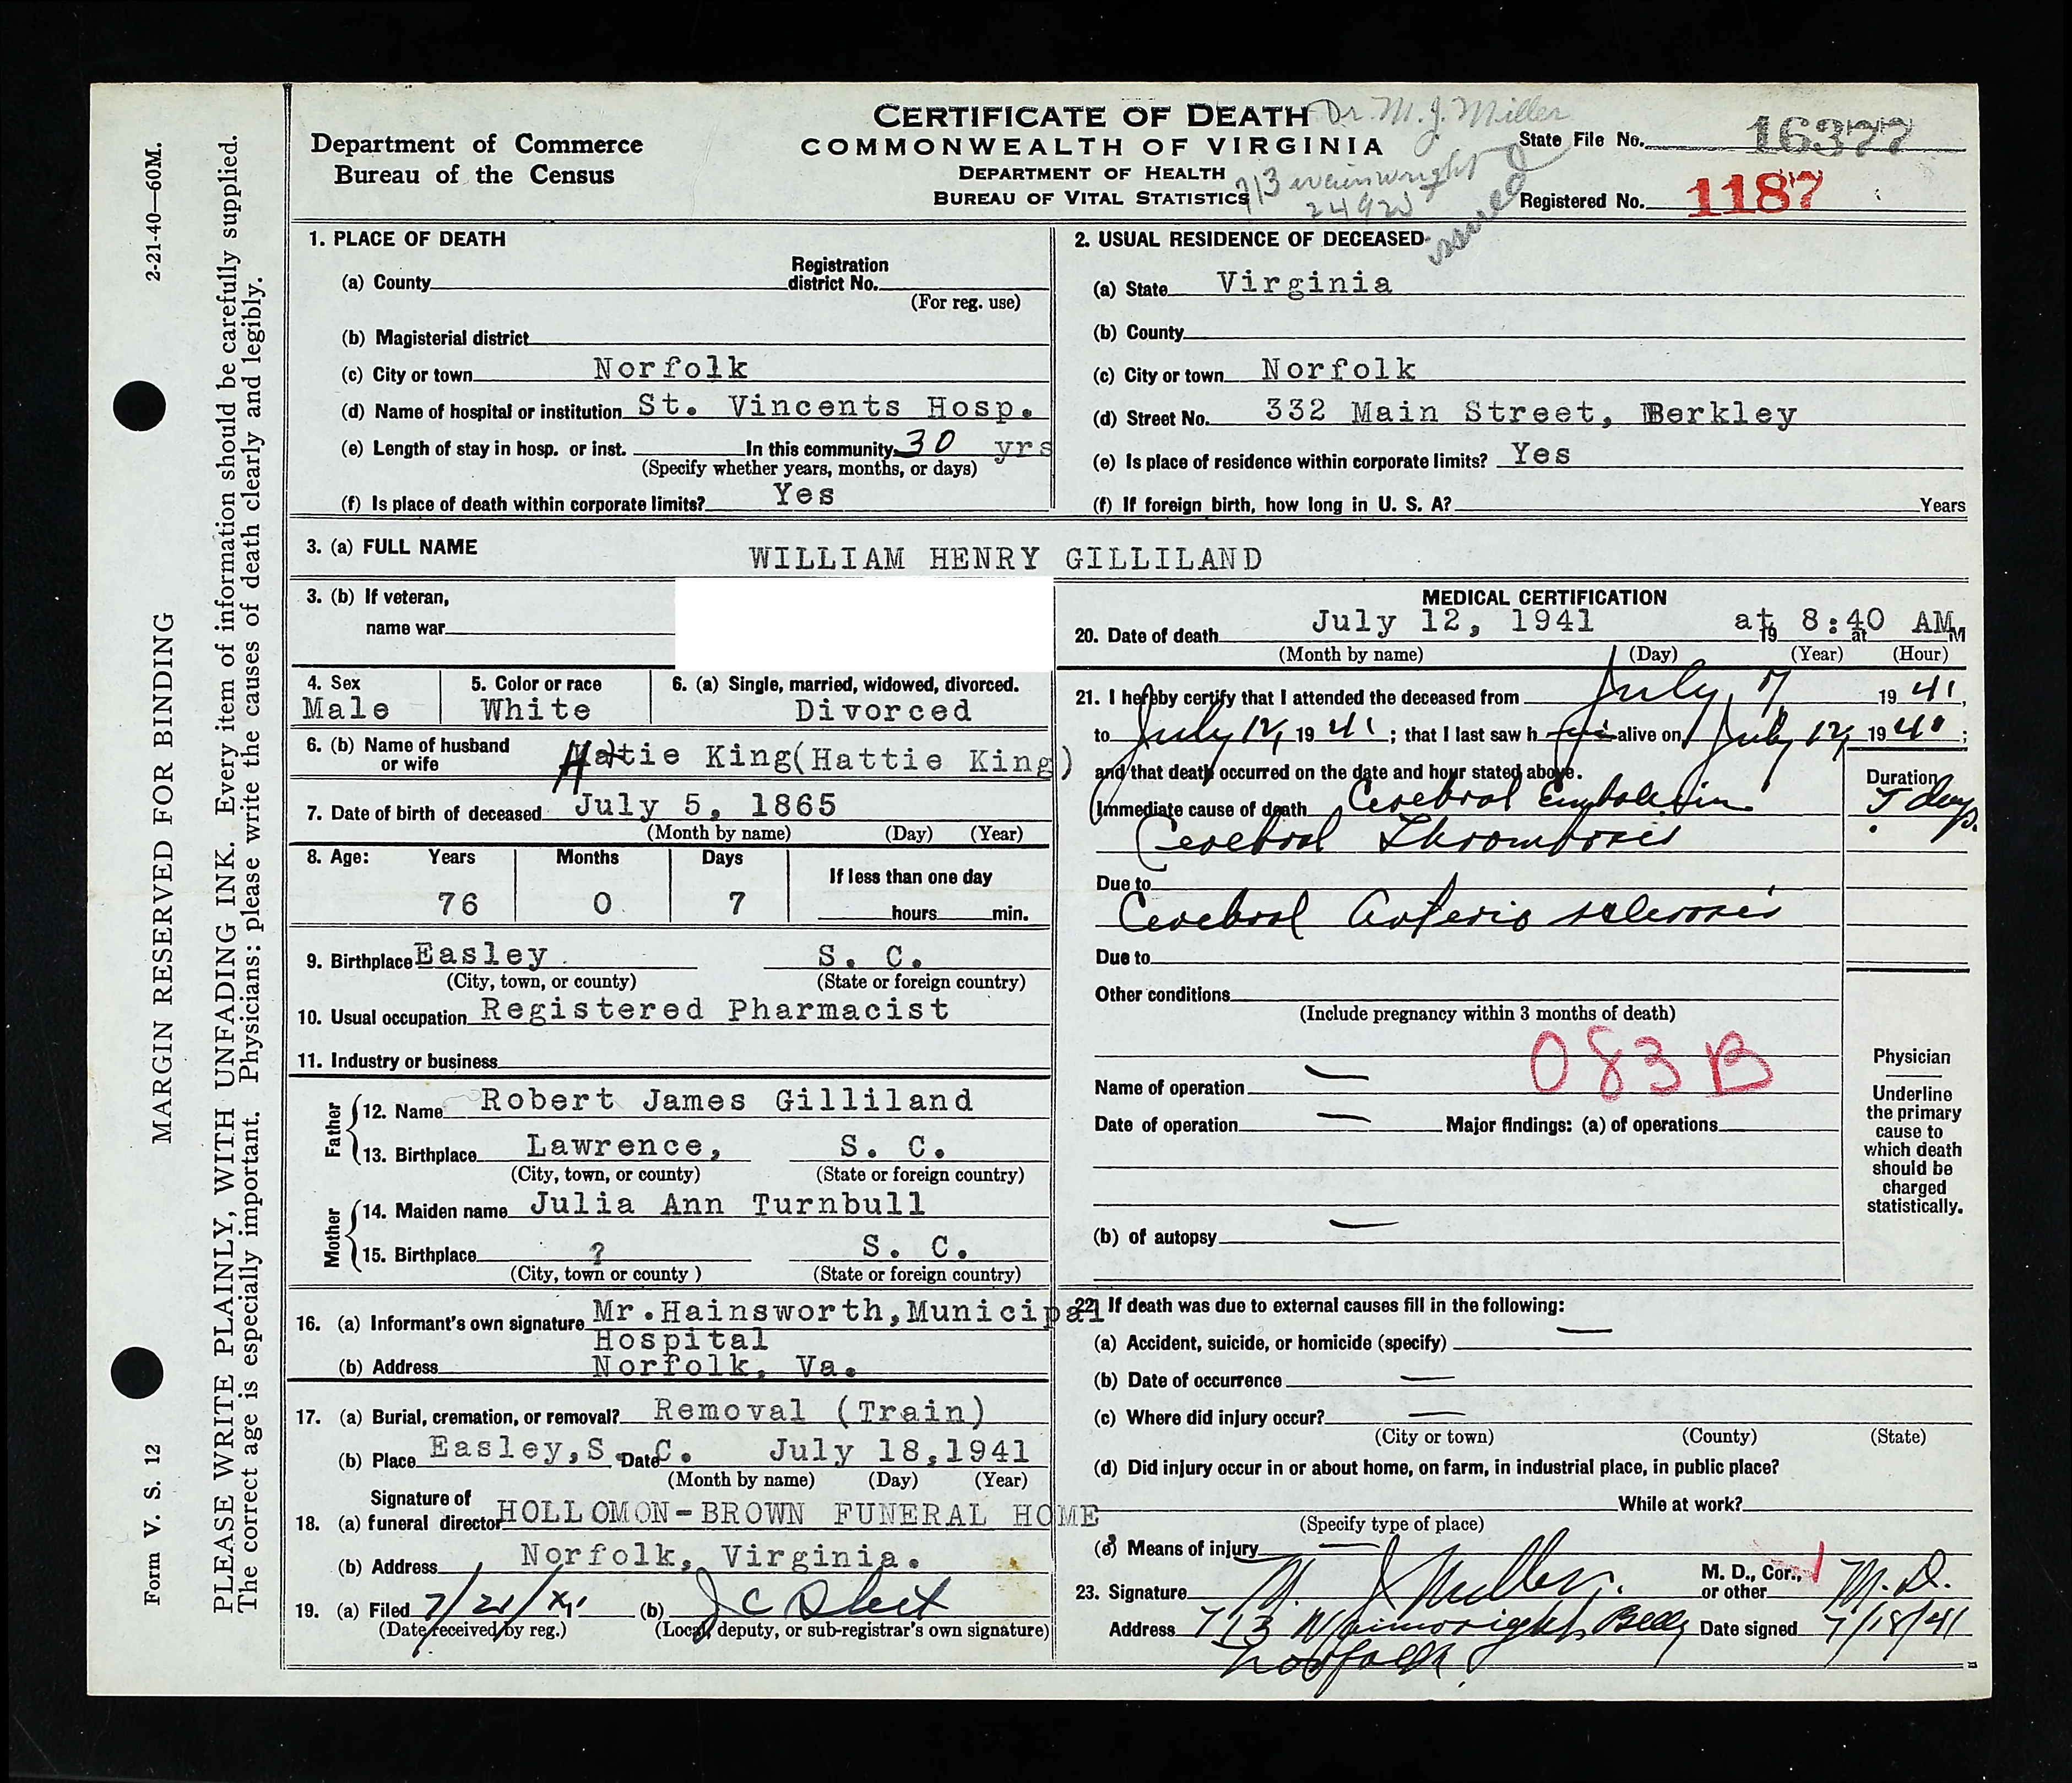 CERTIFICATE OF DEATH
COMMONWEALTH OF VIRGINIA
DEPARTMENT OF HEALTH
BUREAU OF VITAL STATISTICS
Department of Commerce
Bureau of the Census
Dr. M. J. Miller
713 Wainwright
State File No. 16377
Registered No. 1187
2-21-40—60M.
MARGIN RESERVED FOR BINDING
Form V. S. 12
PLEASE WRITE PLAINLY, WITH UNFADING INK. Every item of information should be carefully supplied.
The correct age is especially important. Physicians: please write the causes of death clearly and legibly.
1. PLACE OF DEATH
(a) County Registration district No.
(For reg. use)
(b) Magisterial district
(c) City or town Norfolk
(d) Name of hospital or institution St. Vincents Hosp.
(e) Length of stay in hosp. or inst. In this community 30 yrs
(Specify whether years, months, or days)
(f) Is place of death within corporate limits? Yes
2. USUAL RESIDENCE OF DECEASED
(a) State Virginia
(b) County
(c) City or town Norfolk
(d) Street No. 332 Main Street, Berkley
(e) Is place of residence within corporate limits? Yes
(f) If foreign birth, how long in U. S. A? Years
3. (a) FULL NAME WILLIAM HENRY GILLILAND
3. (b) If veteran,
name war
4. Sex Male
5. Color or race White
6. (a) Single, married, widowed, divorced. Divorced
6. (b) Name of husband or wife Hattie King(Hattie King)
7. Date of birth of deceased July 5, 1865
(Month by name) (Day) (Year)
8. Age: Years Months Days
If less than one day
76 0 7 hours min.
9. Birthplace Easley S. C.
(City, town, or county) (State or foreign country)
10. Usual occupation Registered Pharmacist
11. Industry or business
Father
12. Name Robert James Gilliland
13. Birthplace Lawrence, S. C.
(City, town, or county) (State or foreign country)
Mother
14. Maiden name Julia Ann Turnbull
15. Birthplace ? S. C.
(City, town or county ) (State or foreign country)
16. (a) Informant's own signature Mr.Hainsworth,Municipal
Hospital
(b) Address Norfolk, Va.
17. (a) Burial, cremation, or removal? Removal (Train)
(b) Place Easley,S. C. Date July 18,1941
(Month by name) (Day) (Year)
18. (a) Signature of funeral director HOLLOMON-BROWN FUNERAL HOME
(b) Address Norfolk, Virginia.
19. (a) Filed 7/21/41 (b)
(Date received by reg.) (Local, deputy, or sub-registrar's own signature)
MEDICAL CERTIFICATION
20. Date of death July 12, 1941 at 8:40 AM 19 at M
(Month by name) (Day) (Year) (Hour)
21. I hereby certify that I attended the deceased from July 7 1941,
to July 12, 1941; that I last saw h im alive on July 12, 1941;
and that death occurred on the date and hour stated above.
Duration
Immediate cause of death Cerebral Embolism 5 days.
Cerebral Thrombosis
Due to
Cerebral Arterio sclerosis
Due to
Other conditions
(Include pregnancy within 3 months of death)
083B
Name of operation —
Date of operation — Major findings: (a) of operations
(b) of autopsy —
Physician
Underline
the primary
cause to
which death
should be
charged
statistically.
22. If death was due to external causes fill in the following:
(a) Accident, suicide, or homicide (specify) —
(b) Date of occurrence —
(c) Where did injury occur? —
(City or town) (County) (State)
(d) Did injury occur in or about home, on farm, in industrial place, in public place?
While at work?
(Specify type of place)
(e) Means of injury —
23. Signature M J Miller. M. D., Cor., or other M.D.
Address 713 Wainwright Bldg Date signed 7/18/41
Norfolk.